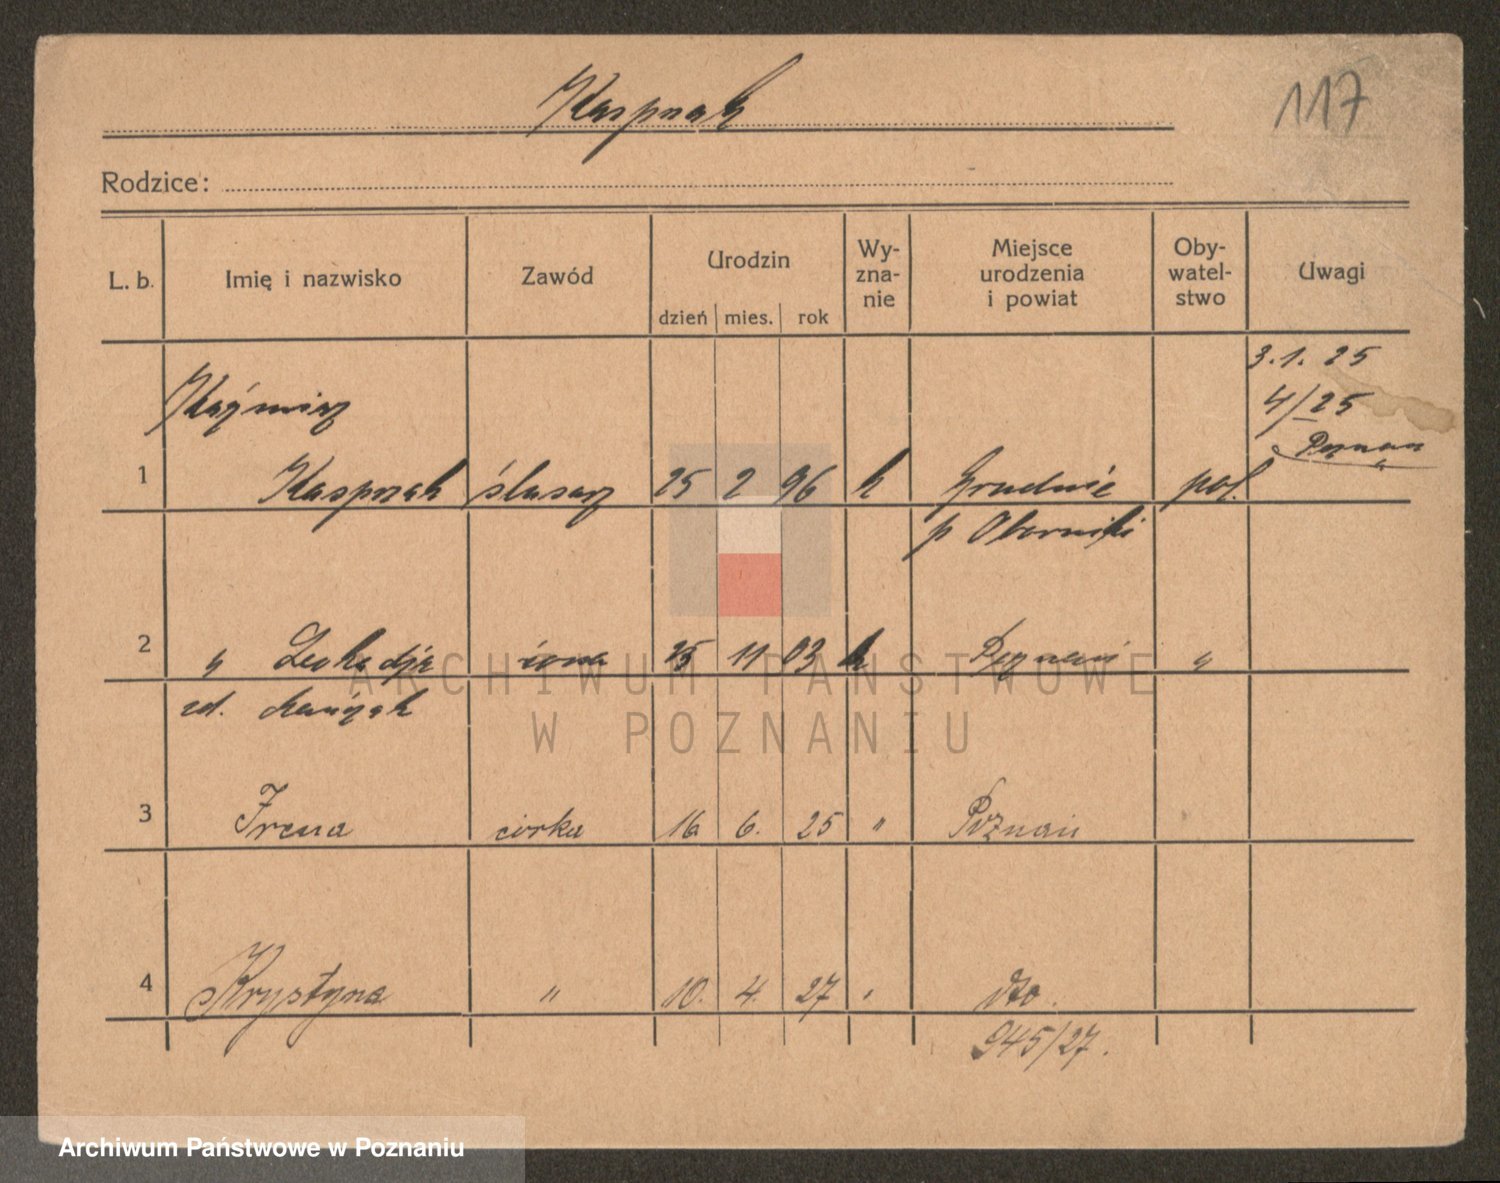 Kasprzak
117
Rodzice:
L. b.
Imię i nazwisko
Zawód
Urodzin
dzień mies. rok
Wy-
zna-
nie
Miejsce
urodzenia
i powiat
Oby-
watel-
stwo
Uwagi
3.1.25
4/25
Poznań
1
Kaźmierz
Kasprzak ślusarz 25 2 96 k pol.
p Oborniki
2 " Leokadja żona 25 11 03 k Poznań "
zd.
3 Irena córka 16 6. 25 " Poznań
4 Krystyna " 10. 4. 27 " dto.
945/27.
ARCHIWUM PAŃSTWOWE
W POZNANIU
Archiwum Państwowe w Poznaniu